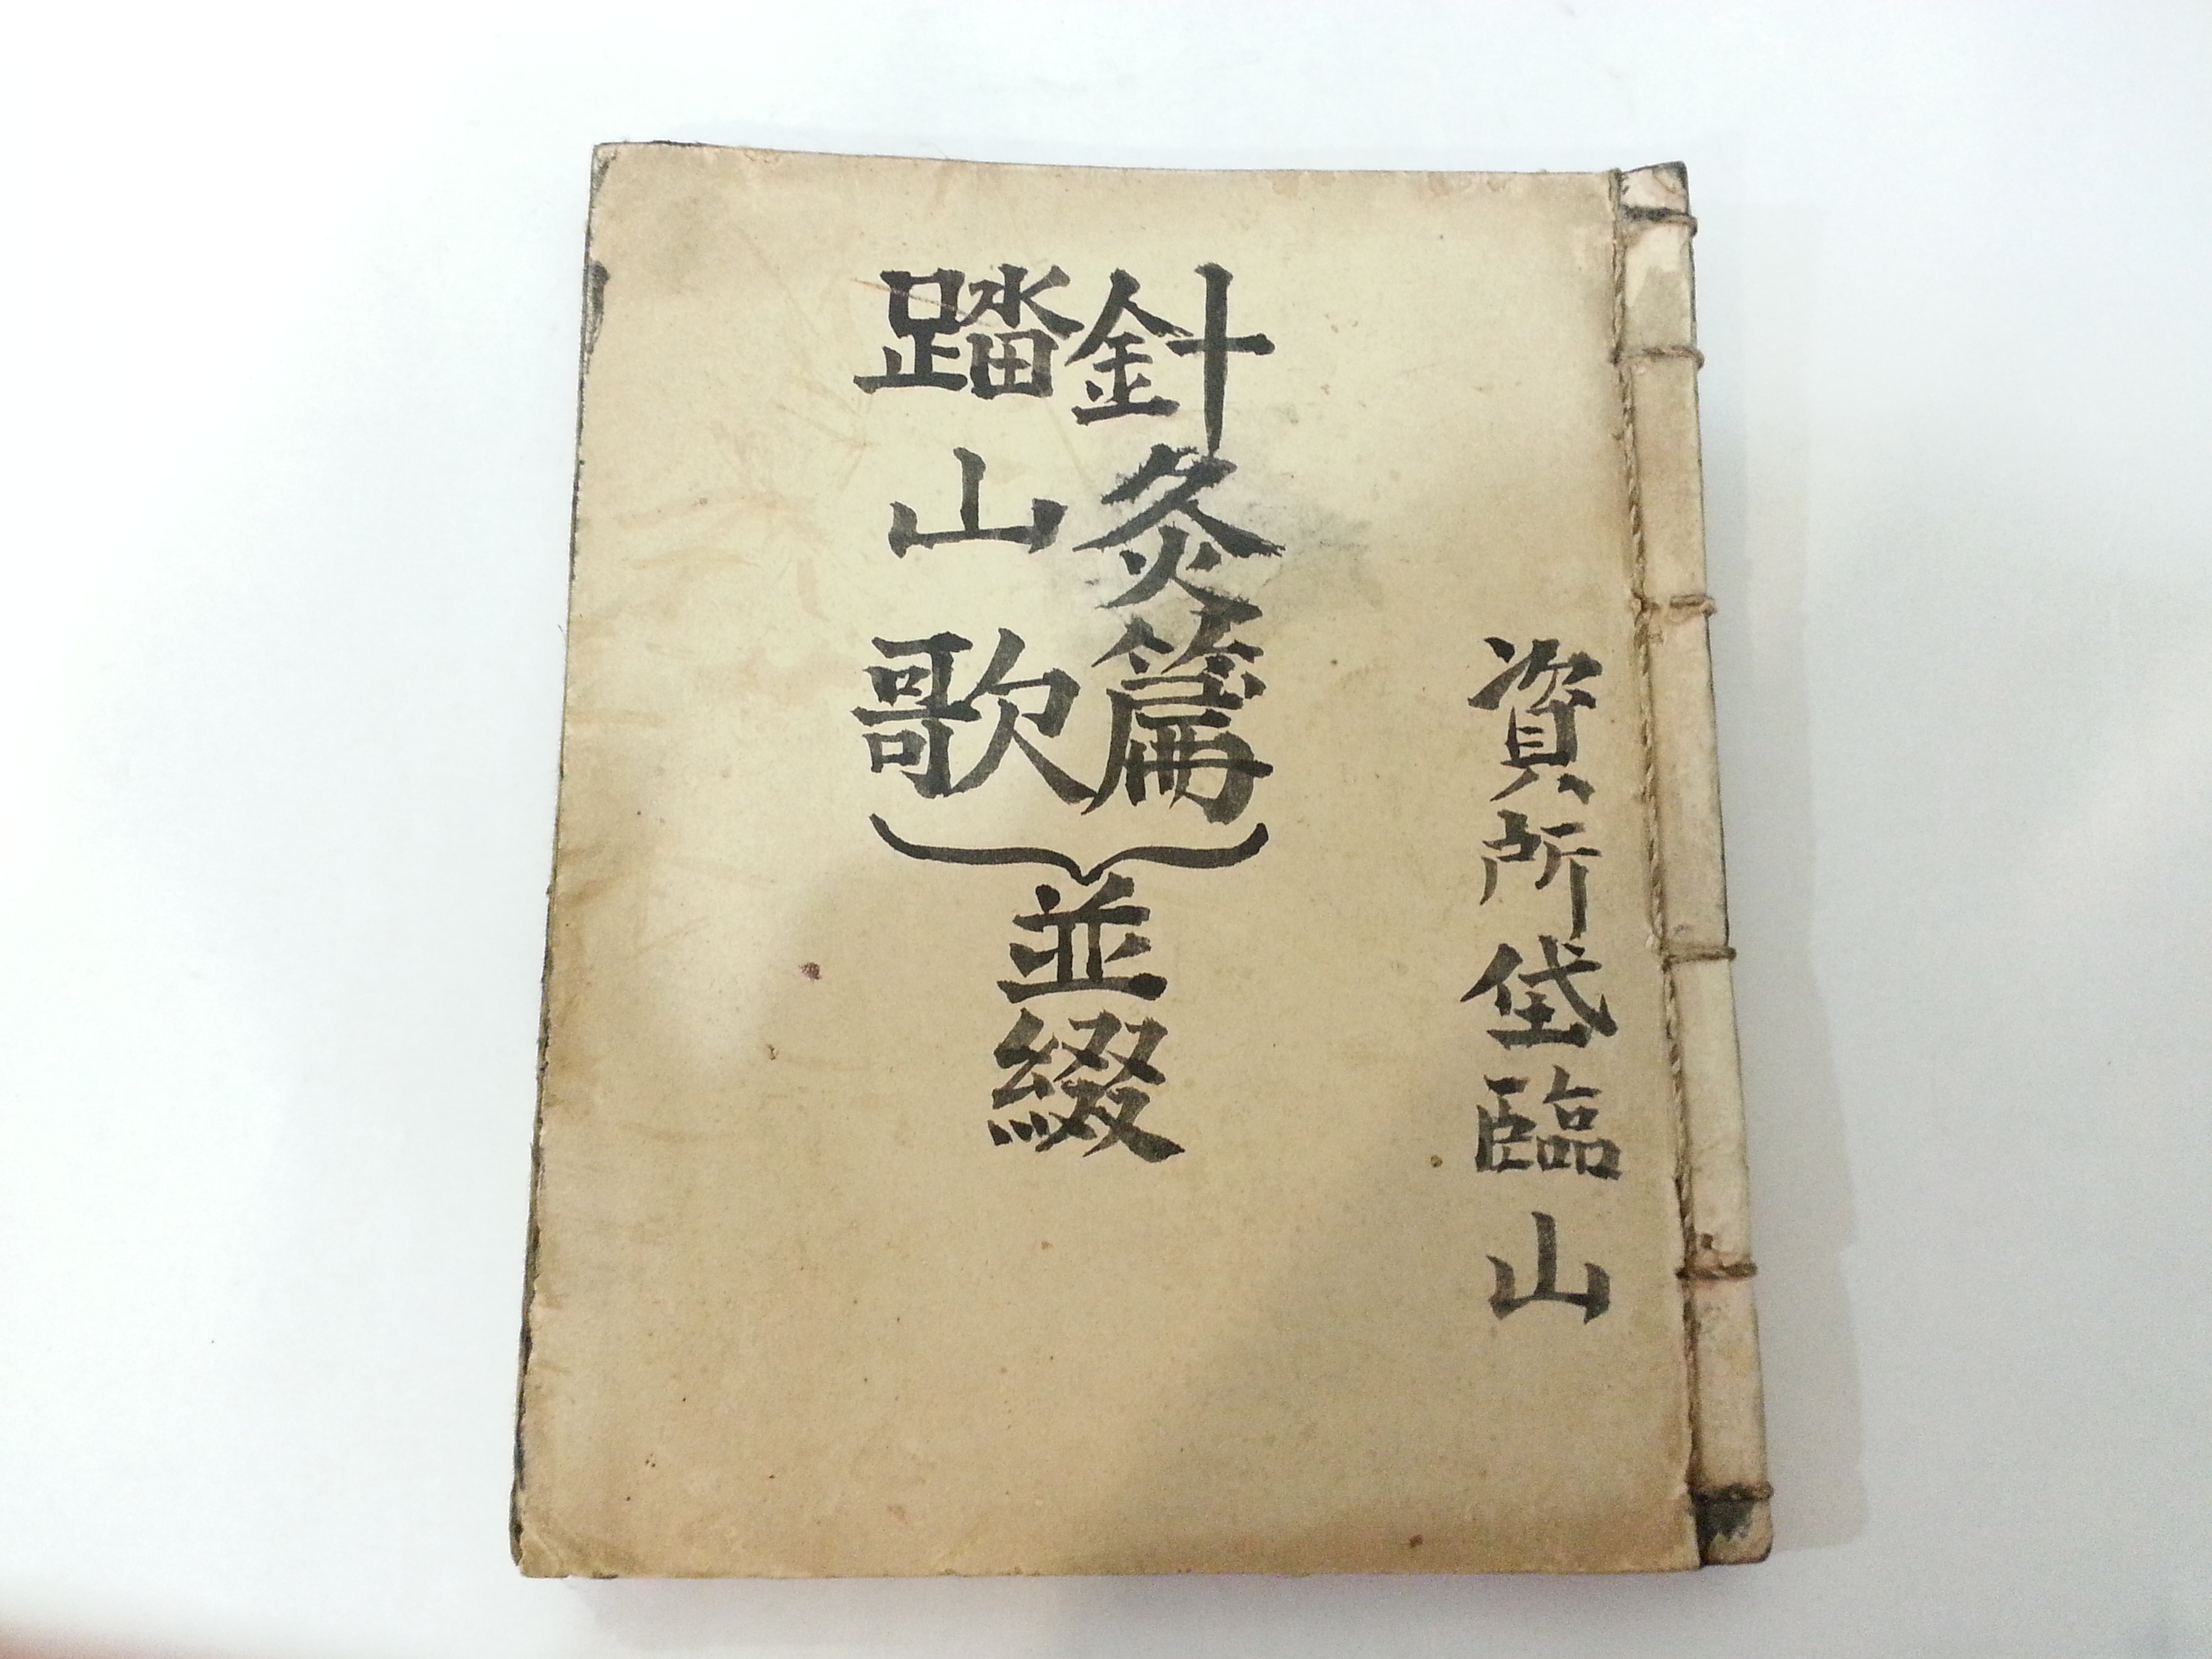 資所垈臨山
針灸篇
踏山歌
並綴